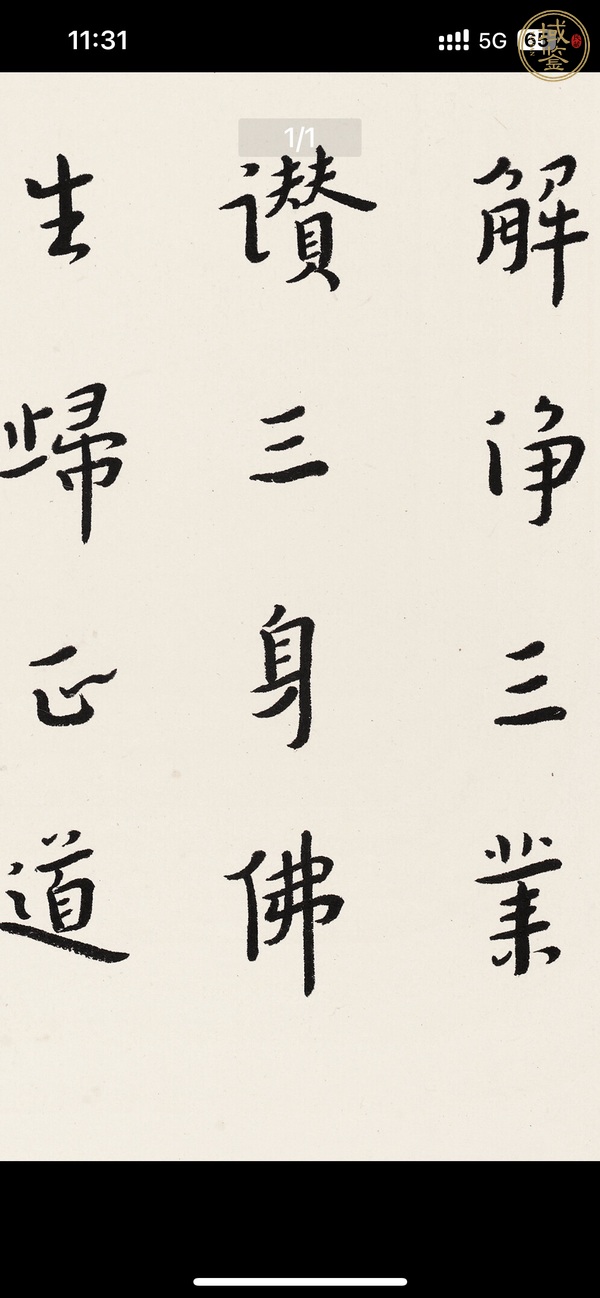 11:31
5G
65
1/1
解淨三業
讃三身佛
生歸正道